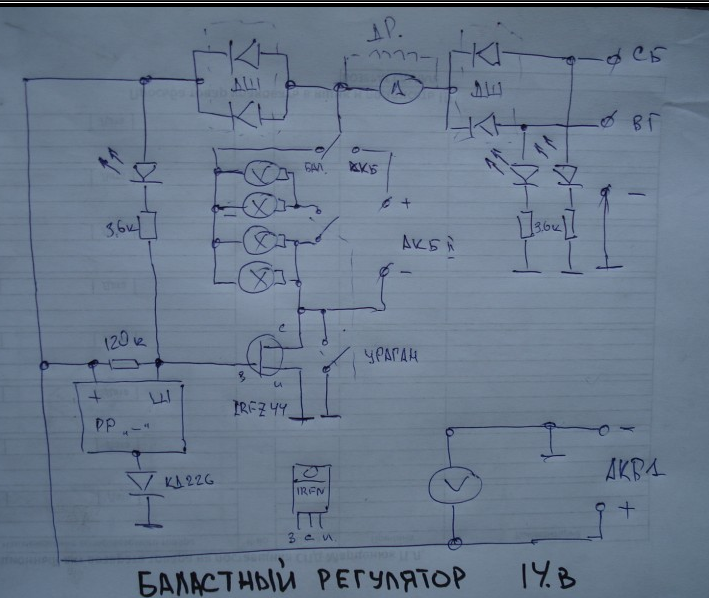 ДР.
СБ
ДШ
А
ДШ
ВГ
БАЛ.
АКБ
V
X
X
X
+
-
3,6к
3,6к
АКБ II
-
120к
С
З
И
УРАГАН
+ Ш
РР „-"
IRFZ44
КД226
IRFN
З С И.
V
-
АКБ1
+
БАЛАСТНЫЙ РЕГУЛЯТОР 14.В